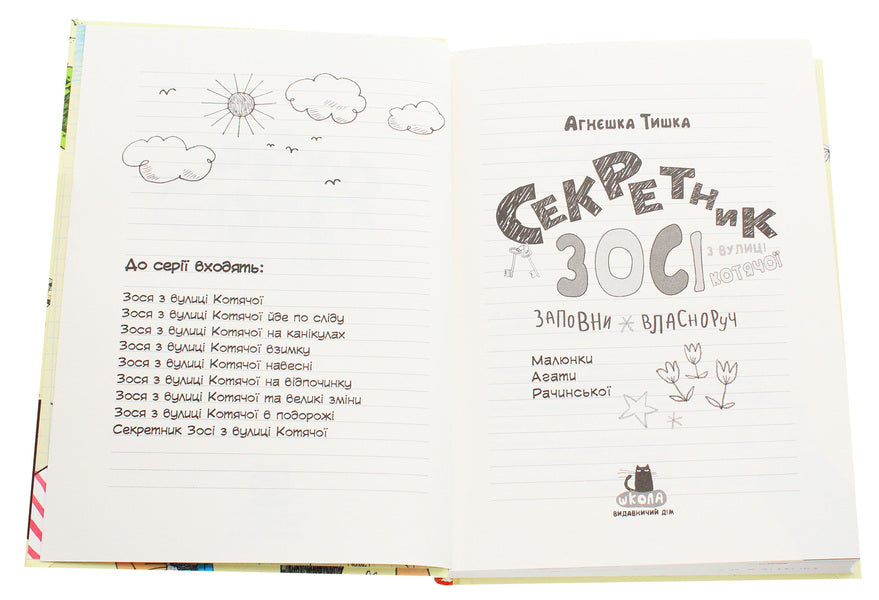 До серії входять:
Зося з вулиці Котячої
Зося з вулиці Котячої йде по сліду
Зося з вулиці Котячої на канікулах
Зося з вулиці Котячої взимку
Зося з вулиці Котячої навесні
Зося з вулиці Котячої на відпочинку
Зося з вулиці Котячої та великі зміни
Зося з вулиці Котячої в подорожі
Секретник Зосі з вулиці Котячої
Агнєшка Тишка
Секретник
Зосі
з вулиці
Котячої
заповни власноруч
Малюнки
Агати
Рачинської
школа
видавничий дім